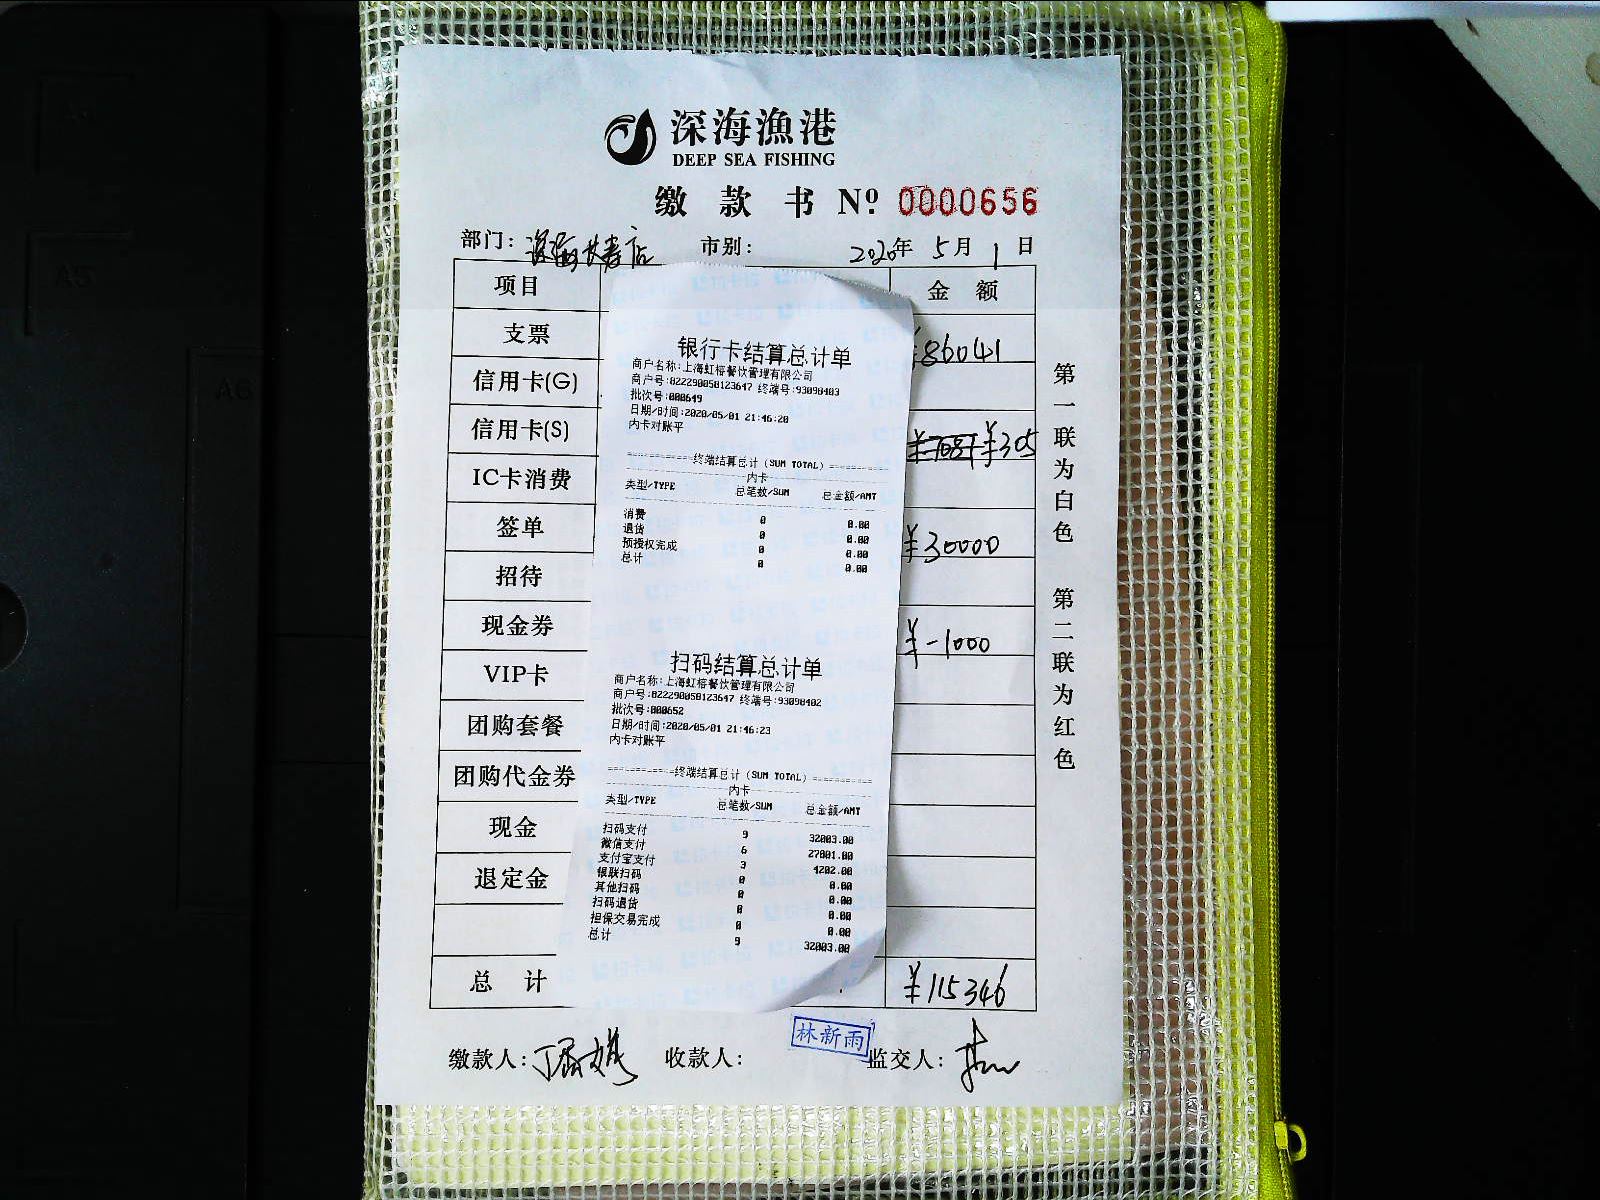 深海漁港
DEEP SEA FISHING
缴 款 书 Nº 0000656
部门: 深海长寿店 市别: 2020年 5月 1日
项目 金 额
支票 ¥86041
信用卡(G)
信用卡(S) ¥305
IC卡消费
签单 ¥30000
招待
现金券 ¥-1000
VIP卡
团购套餐
团购代金券
现金
退定金
总 计 ¥115346
缴款人: 收款人: 林新雨 监交人:
第一联为白色 第二联为红色
银行卡结算总计单
商户名称:上海虹榕餐饮管理有限公司
商户号:822290058123647 终端号:93098403
批次号:000649
日期/时间:2020/05/01 21:46:20
内卡对账平
===========终端结算总计(SUM TOTAL)==========
内卡
类型/TYPE 总笔数/SUM 总金额/AMT
消费 0 0.00
退货 0 0.00
预授权完成 0 0.00
总计 0 0.00
扫码结算总计单
商户名称:上海虹榕餐饮管理有限公司
商户号:822290058123647 终端号:93098402
批次号:000652
日期/时间:2020/05/01 21:46:23
内卡对账平
===========终端结算总计(SUM TOTAL)==========
内卡
类型/TYPE 总笔数/SUM 总金额/AMT
扫码支付 9 32003.00
微信支付 6 27801.00
支付宝支付 3 4202.00
银联扫码 0 0.00
其他扫码 0 0.00
扫码退货 0 0.00
担保交易完成 0 0.00
总计 9 32003.00